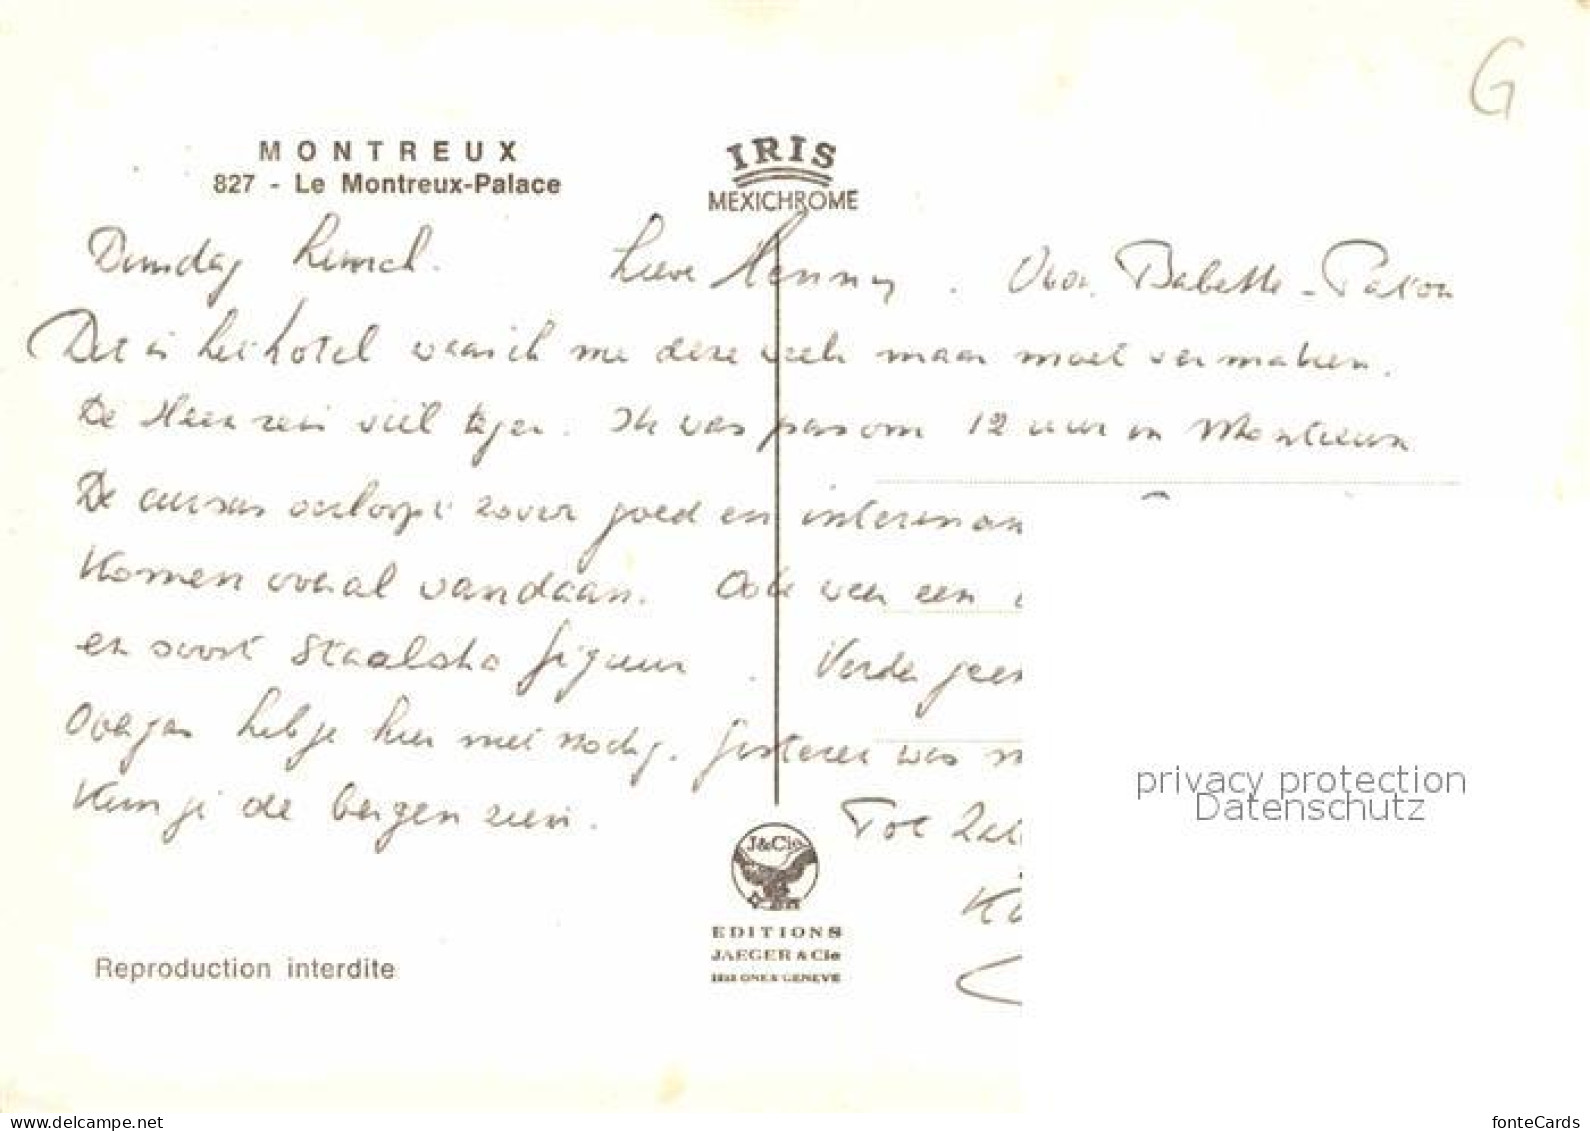 G
MONTREUX
827 - Le Montreux-Palace
IRIS
MEXICHROME
Dinsdag Lunch. Lieve Henny. Voor Babette - Patron
Dit is het hotel waar ik me deze week maar moet vermaken.
De Heenreis viel tegen. Ik was pas om 12 uur in Montreux
De cursus verloopt zover goed en interessan
Komen overal vandaan. Ook weer een
en soort figuur. Verder geen
Overjas heb je hier niet nodig. Gisteren was
Kun je de bergen zien. Tot
J&Cie
EDITIONS
JAEGER & Cie
1213 ONEX GENEVE
Reproduction interdite
privacy protection
Datenschutz
www.delcampe.net
fonteCards